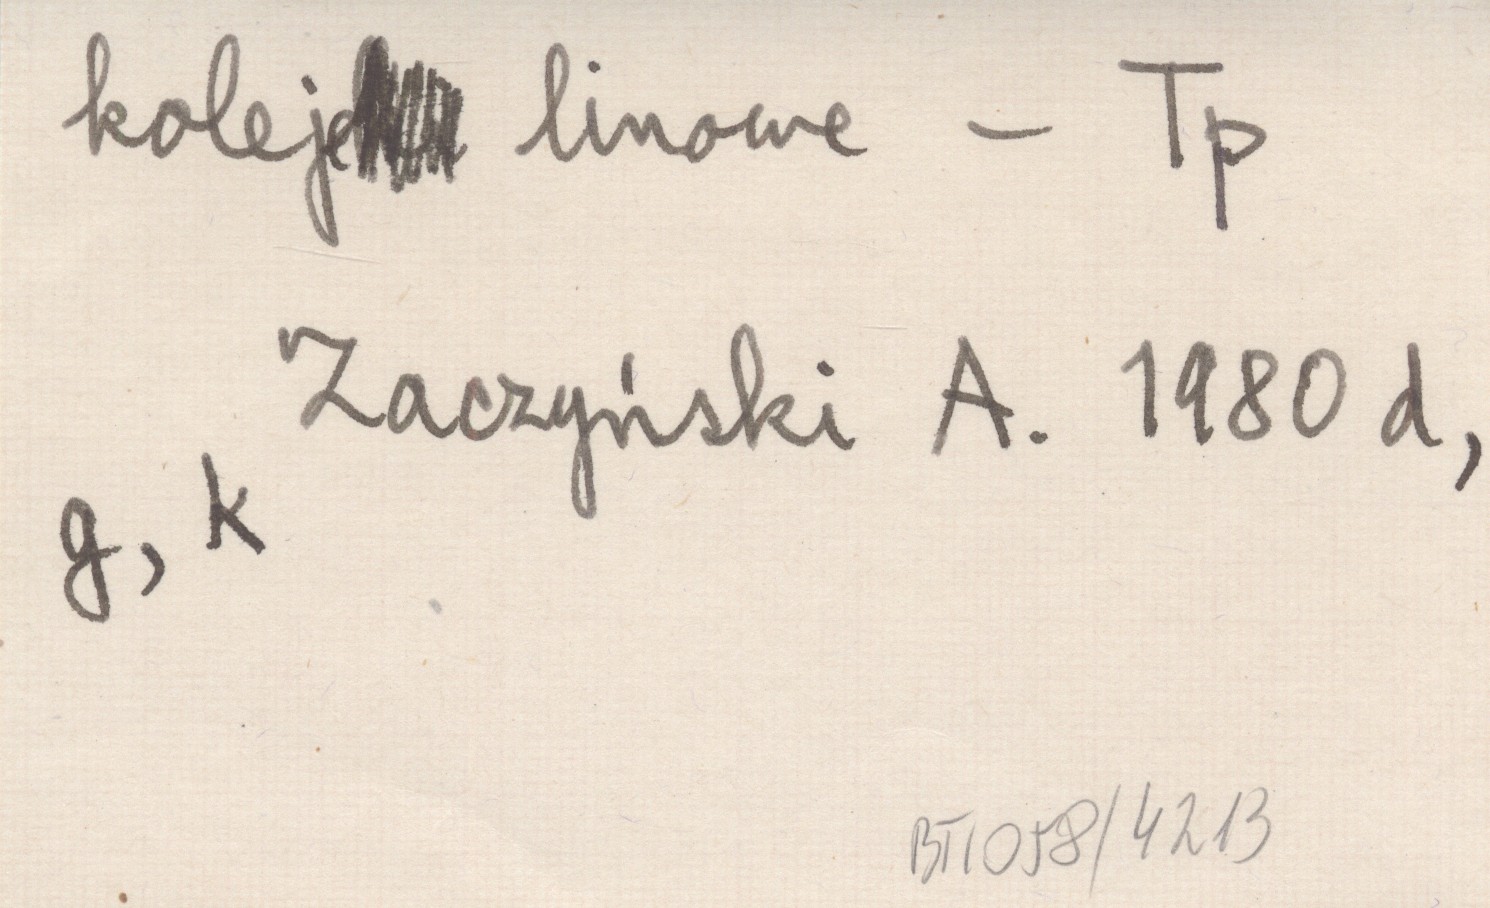 koleje linowe – Tp
Zaczyński A. 1980 d,
g, k
BT1058/4213